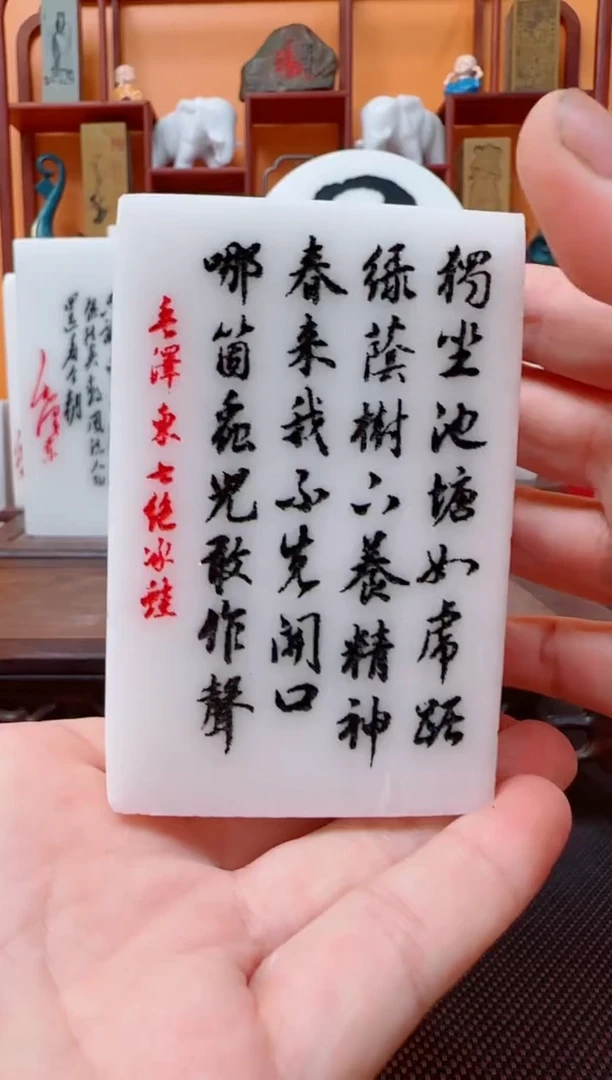 獨坐池塘如虎踞
綠蔭樹下養精神
春來我不先開口
哪箇虫兒敢作聲
毛澤東七绝咏蛙